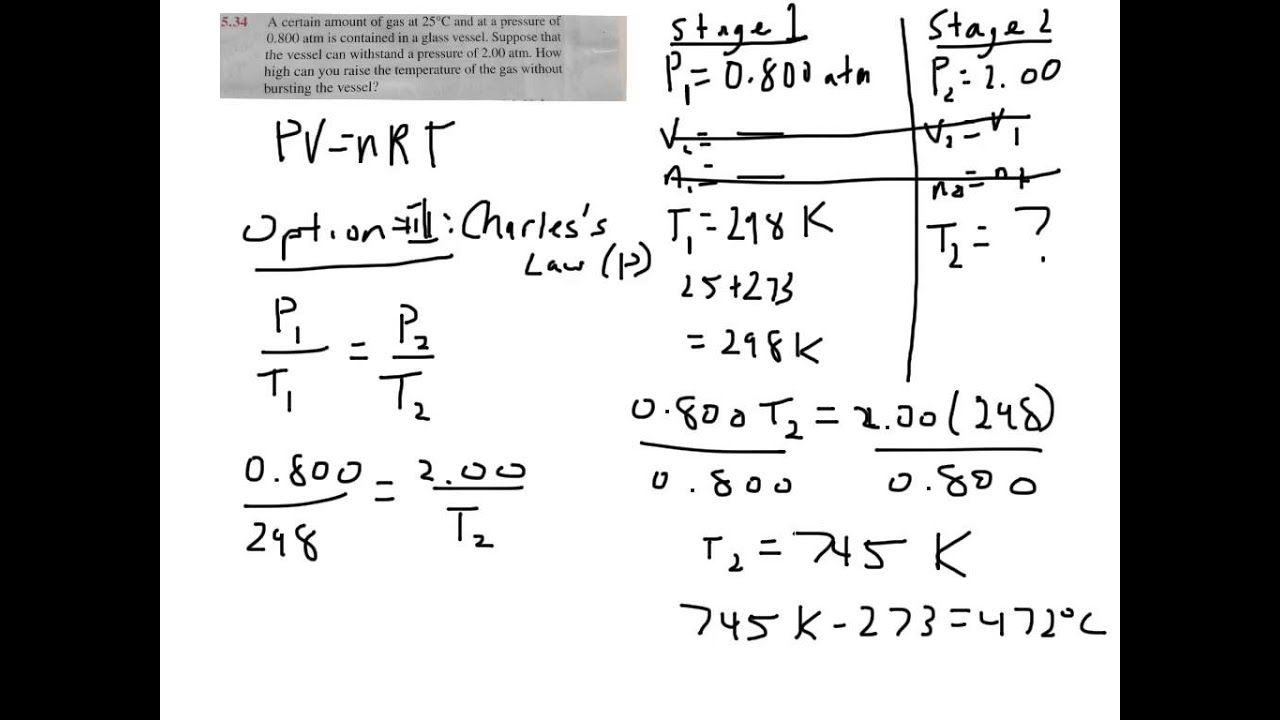 5.34 A certain amount of gas at 25°C and at a pressure of
0.800 atm is contained in a glass vessel. Suppose that
the vessel can withstand a pressure of 2.00 atm. How
high can you raise the temperature of the gas without
bursting the vessel?
PV=nRT
Option : Charles's
Law (P)
P₁/T₁ = P₂/T₂
0.800/298 = 2.00/T₂
Stage 1
P₁ = 0.800 atm
V₁ = __
n₁ = __
T₁ = 298 K
25+273
= 298K
Stage 2
P₂ = 2.00
V₂ = V₁
n₂ = n₁
T₂ = ?
0.800 T₂/0.800 = 2.00(298)/0.800
T₂ = 745 K
745 K - 273 = 472°C